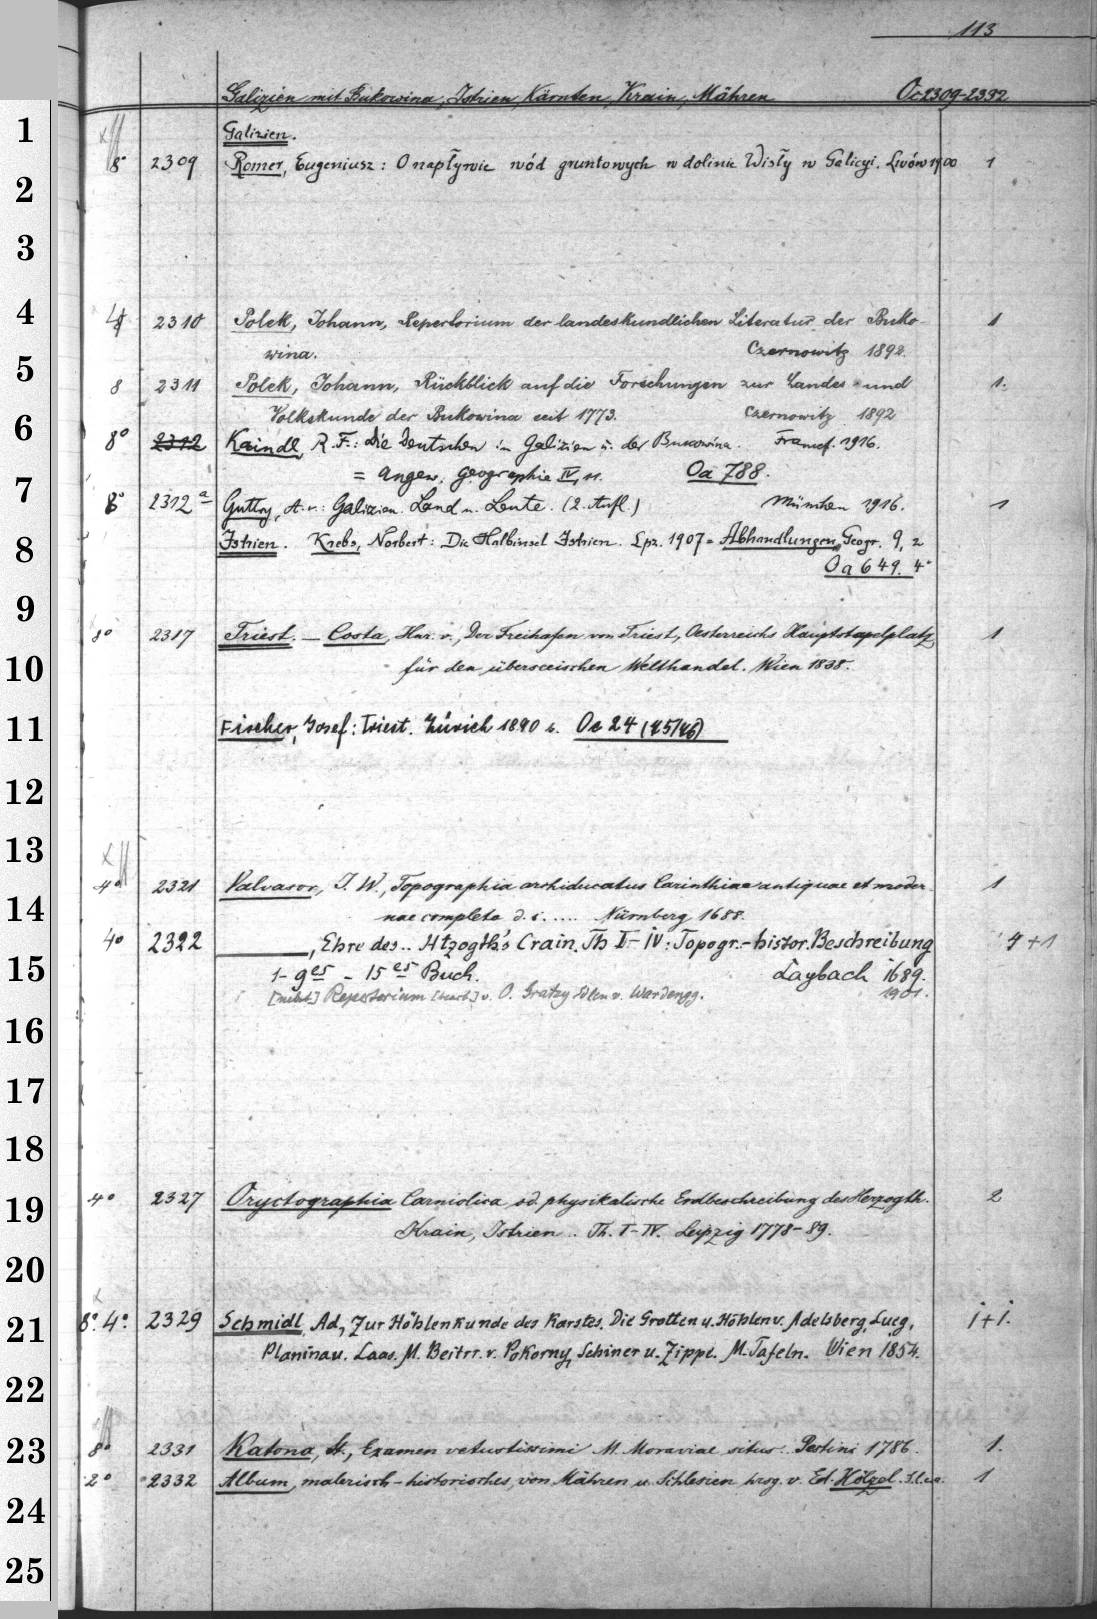 113
Galizien mit Bukowina, Istrien, Kärnten, Krain, Mähren Oc2309-2332
1
Galizien.
8° 2309 Romer, Eugeniusz: O napływie wód gruntowych w dolinie Wisły w Galicyi. Lwów 1900 1
2
3
4
4 2310 Polek, Johann, Repertorium der landeskundlichen Literatur der Buko- 1
wina. Czernowitz 1892.
5
8 2311 Polek, Johann, Rückblick auf die Forschungen zur Landes- und 1.
Volkskunde der Bukowina seit 1773. Czernowitz 1892
6
8° 2312 Kaindl, R. F.: Die Deutschen in Galizien u. der Bukowina. Francf. 1916.
= Angew. Geographie IV, 11. Oa 788.
7
8° 2312a Guttry, A. v.: Galizien. Land u. Leute. (2. Aufl.) München 1916. 1
8
Istrien. Krebs, Norbert: Die Halbinsel Istrien. Lpz. 1907 = Abhandlungen, Geogr. 9, 2
Oa 649. 4°
9
8° 2317 Triest. — Costa, Hnr. v., Der Freihafen von Triest, Oesterreichs Hauptstapelplatz 1
10
für den überseeischen Welthandel. Wien 1838.
11
Fischer, Josef: Triest. Zürich 1890 s. Oc 24 (75/76)
12
13
4° 2321 Valvasor, J. W., Topographia archiducatus Carinthiae antiquae et moder- 1
14
nae completa d. i. .... Nürnberg 1688.
4° 2322 ———, Ehre des .. Htzogth's Crain. Th I-IV: Topogr.-histor. Beschreibung 4+1
15
1-9es - 15es Buch. Laybach 1689.
[nebst] Repertorium [bearb.] v. O. Gratzy Edlen v. Wardengg. 1901.
16
17
18
19
4° 2327 Oryctographia Carniolica od. physikalische Erdbeschreibung des Herzogth. 2
Krain, Istrien .. Th. I-IV. Leipzig 1778-89.
20
21
8°. 4°. 2329 Schmidl, Ad., Zur Höhlenkunde des Karstes. Die Grotten u. Höhlen v. Adelsberg, Lueg, 1+1.
Planina u. Laas. M. Beitrr. v. Pokorny, Schiner u. Zippe. M. Tafeln. Wien 1854.
22
23
8° 2331 Katona, St., Examen vetustissimi M. Moraviae situs. Pestini 1786. 1.
2° 2332 Album, malerisch-historisches, von Mähren u. Schlesien hrsg. v. Ed. Hölzel. S.l.e.a. 1
24
25